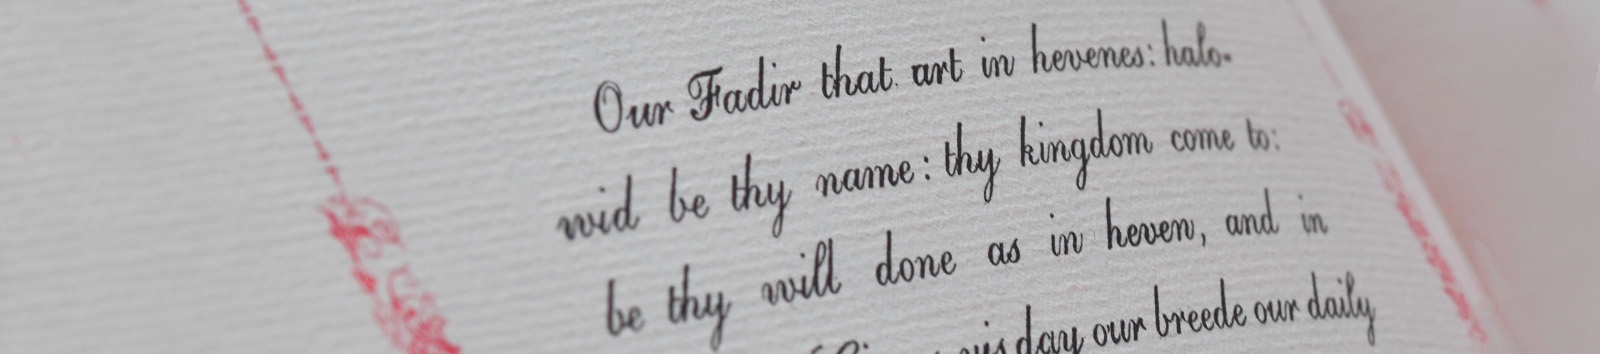 Our Fadir that art in hevenes: halo-
wid be thy name: thy kingdom come to:
be thy will done as in heven, and in
day our breede our daily